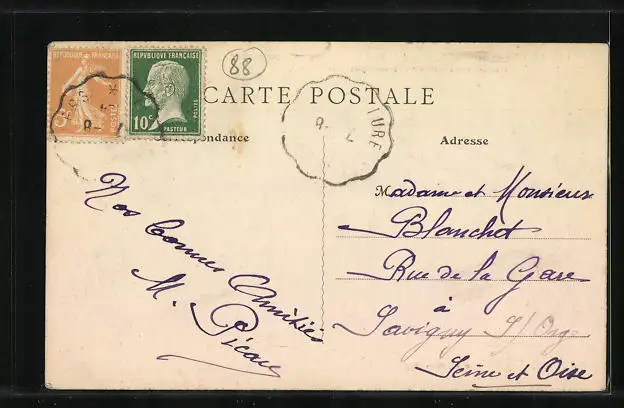 RÉPUBLIQUE FRANÇAISE
5c
POSTES
RÉPUBLIQUE FRANÇAISE
10c
POSTES
PASTEUR
88
CARTE POSTALE
Correspondance
Adresse
8- 7
TURE
8- 7
Nos bonnes Amitiés
M. Picau
Madame et Monsieur
Blanchet
Rue de la Gare
à
Savigny S/Org
Seine et Oise